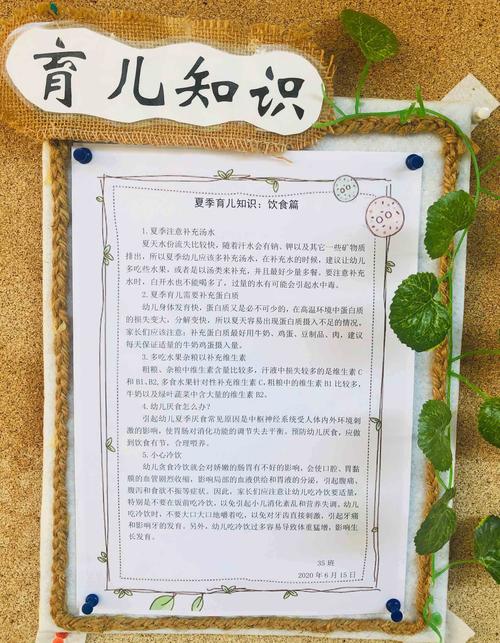 育儿知识
夏季育儿知识：饮食篇
1.夏季注意补充汤水
夏天水份流失比较快，随着汗水会有钠、钾以及其它一些矿物质
排出，所以夏季幼儿应该多补充汤水，在补充水的时候，建议让幼儿
多吃些水果，或者是以汤类来补充，并且最好少量多餐。要注意补充
水时，白开水也不能喝多了，过量的水有可能会引起水中毒。
2.夏季育儿需要补充蛋白质
幼儿身体发育快，蛋白质又是必不可少的，在高温环境中蛋白质
的损失变大、分解变快，所以夏天容易出现蛋白质摄入不足的情况。
家长们应该注意：补充蛋白质最好用牛奶、鸡蛋、豆制品、肉，建议
每天保证适量的牛奶鸡蛋摄入量。
3.多吃水果杂粮以补充维生素
粗粮、杂粮中维生素含量比较多，汗液中损失较多的是维生素 C
和 B1、B2。多食水果针对性补充维生素 C，粗粮中的维生素 B1 比较多，
牛奶以及绿叶蔬菜中含大量的维生素 B2。
4.幼儿厌食怎么办？
引起幼儿夏季厌食常见原因是中枢神经系统受人体内外环境刺
激的影响，使胃肠对消化功能的调节失去平衡。预防幼儿厌食，应做
到饮食有节、合理喂养。
5.小心冷饮
幼儿贪食冷饮就会对娇嫩的肠胃有不好的影响，会使口腔、胃黏
膜的血管剧烈收缩，影响局部的血液供给和胃液的分泌，引起腹痛、
腹泻和食欲不振等症状。因此，家长们应注意让幼儿吃冷饮要适量，
特别是不要在饭前吃冷饮，以免引起小儿消化紊乱和营养失调。幼儿
吃冷饮时，不要大口大口地嚼着吃，以免对牙齿直接刺激，引起牙痛
和影响牙的发育。另外，幼儿吃冷饮过多容易导致体重猛增，影响生
长发育。
35 班
2020 年 6 月 15 日